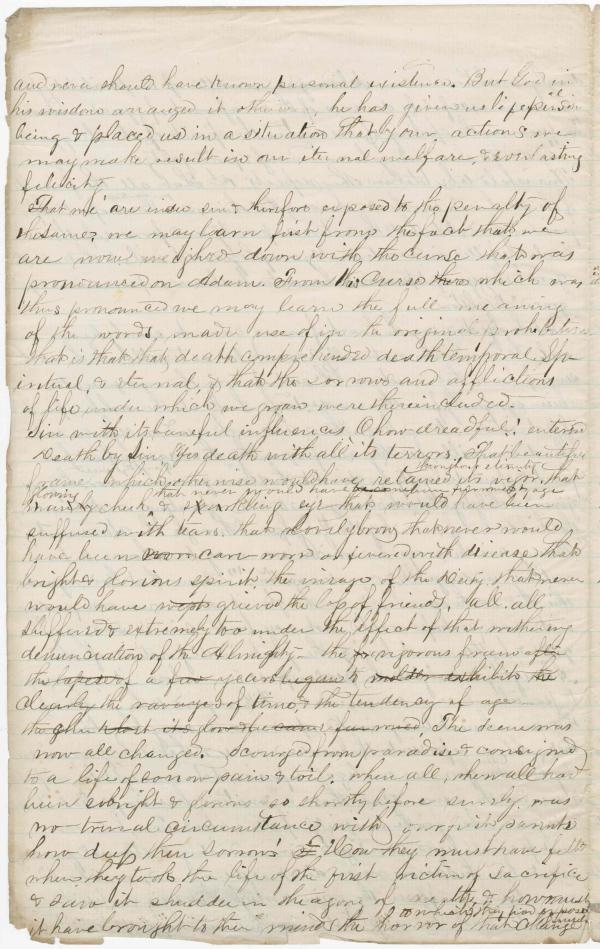 and never should have known personal existence. But God in
his wisdom arranged it otherwise, he has given us
being & placed us in a situation that by our actions we
may make result in our eternal welfare, & everlasting
felicity.
That we are in sin & therefore exposed to the penalty of
the same; we may learn first from the fact that we
are now weighed down with the curse that was
pronounced on Adam. From the Curse there which was
thus pronounced we may learn the full meaning
of the words, made use of in the original prohibition
that is that that death comprehended death temporal, Spi-
ritual, & eternal, & that the sorrows and afflictions
of life under which we groan were therein included.
Sin with its baneful influences O how dreadful! entered
Death by Sin. Yes death with all its terrors. That beautiful
frame which otherwise would have retained its vigor throughout eternity that
glowing cheek, that never would have been by age
& sparkling eye that would have been
suffused with tears, that lovely brow that never would
have been care worn or fevered with disease, that
bright & glorious spirit the image of the Deity, that never
would have wept grieved the loss of friends, all, all,
suffered & extremely too under the effect of that withering
denunciation of the Almighty. the vigorous frame after
the lapse of a few years began to exhibit the
clearly the ravages of time, & the tendency of age
the cheek lost its glow & The scene was
now all changed. Scourged from paradise & consigned
to a life of sorrow pain & toil. when all, when all had
been so bright & glorious so shortly before surely was
no trivial circumstance with our first parents
how deep their sorrows How they must have felt
when they took the life of the first victim of sacrifice
& saw it shudder in the agony of death, & how must
it have brought to their minds the horror of that change
to which they had exposed